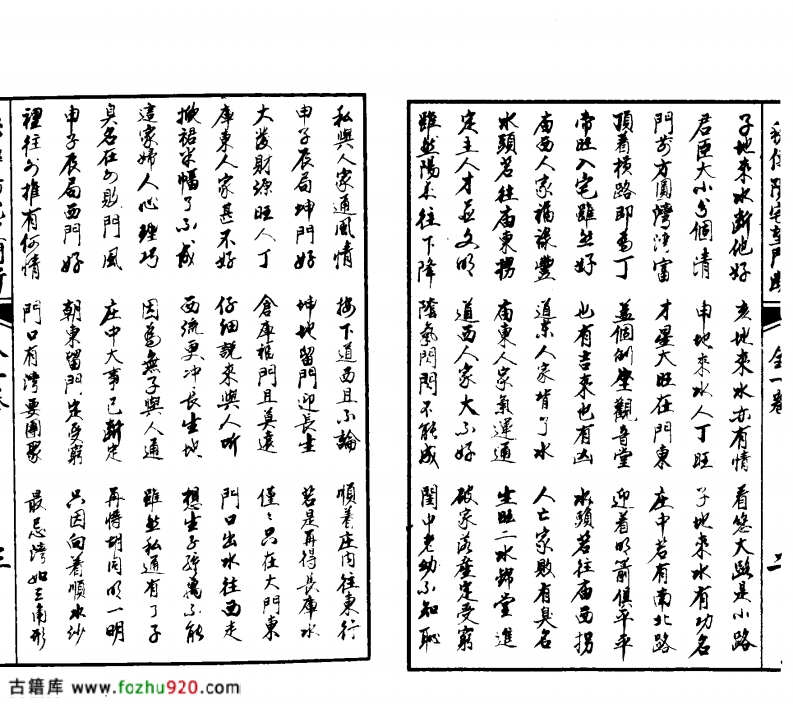 子地來水斷他好 亥地來水亦有情 看悠大路是小路
君臣大小分個清 申地來水人丁旺 子地來水有功名
門前方圓灣灣富 才星大旺在門東 庄中若有南北路
頂着橫路即為丁 蓋個倒堂觀音堂 迎着明箭俱平平
帝旺入宅雖然好 也有吉來也有凶 水頭若往廟西拐
廟西人家福祿豐 道東人家背了水 人亡家敗有臭名
水頭若往廟東拐 廟東人家氣運通 生旺二水歸堂進
定主人才並文明 道西人家大不好 破家落產定受窮
雖然陽木往下降 陰氣悶悶不能成 閨中老幼不知恥
私與人家通風情 接下道西且不論 順着庄内往東行
申子辰局坤門好 坤地留門迎長生 若是再得長庫水
大發財源旺人丁 倉庫福門且莫遠 僅々只在大門東
庫東人家甚不好 仔細說來與人听 門口出水往西走
掀裙半幅了不成 西流更冲長生地 想生子孫萬不能
這家婦人心理巧 因為無子與人通 雖然私通有了子
臭名在外敗門風 庄中大事已斷定 再將胡同明一明
申子辰局西門好 朝東留門定受窮 只因向着順水紗
裡往外推有何情 門口有灣要團聚 最忌灣如三角形
古籍库 www.fozhu920.com